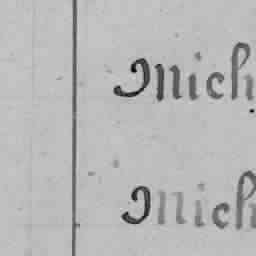 Mich
Mich